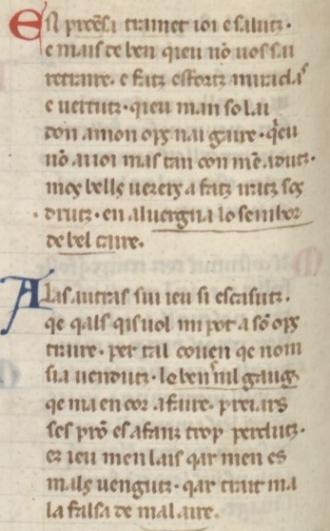 EN proẽsa tramet ioi e saluz·
e mais de ben qieu nõ uos sai
retraire. e faiz esforz miracla⁹
e uertuz· qieu man so lai
don amon ops nai gaire· qeu
nõ ai ioi mas tan con mẽ aduz·
mos bells uezers a faiz maiz sos
druz· en aluergna lo seinhor
de bel caire.
ALas autras sui ieu si escasuz·
qe qals qis uol mi pot a sõ ops
traire· per tal couen qe nom
sia uenduz· lo ben ni l gaug
qe ma en cor a faire. preiars
ses prõ es afanz trop perduz·
ez ieu men lais qar men es
mals uenguz· qar trait ma
la falsa de mal aire.